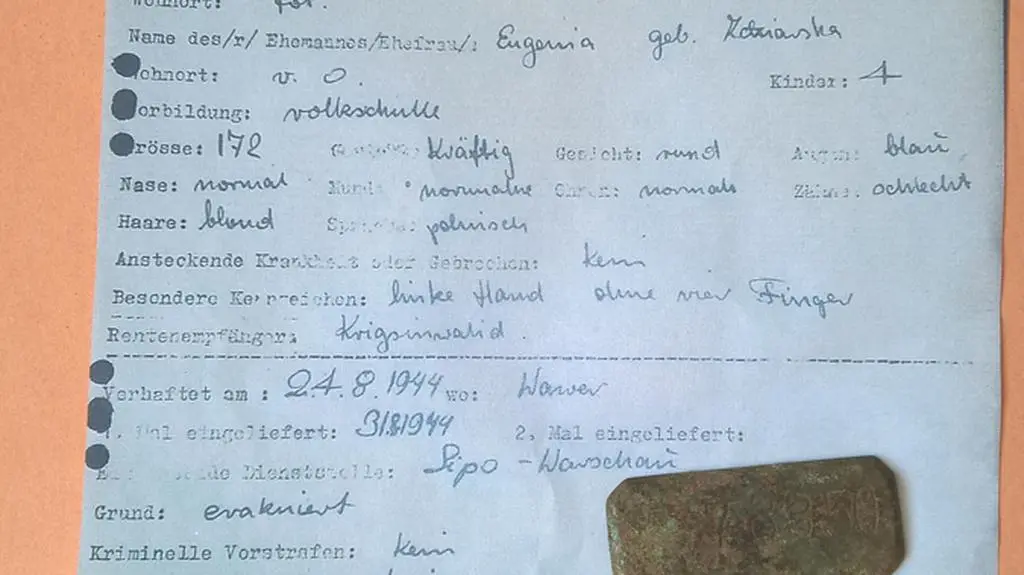 Wohnort: j.w.
Name des/r/ Ehemannes/Ehefrau/: Eugenia geb.
Wohnort: w. o. Kinder: 4
Vorbildung: volkschulle
Grösse: 172 Kräftig Gesicht: rund Augen: blau
Nase: normal Mund: normalne Ohren: normale Zähne: schlecht
Haare: blond Sprache: polnisch
Ansteckende Krankheit oder Gebrechen: kein
Besondere Kennzeichen: linke Hand ohne vier Finger
Rentenempfänger: Krigsinwalid
Verhaftet am: 24.8.1944 wo: Wawer
1. Mal eingeliefert: 31.8.1944 2. Mal eingeliefert:
Dienststelle: Sipo - Warschau
Grund: evakuiert
Kriminelle Vorstrafen: Kein